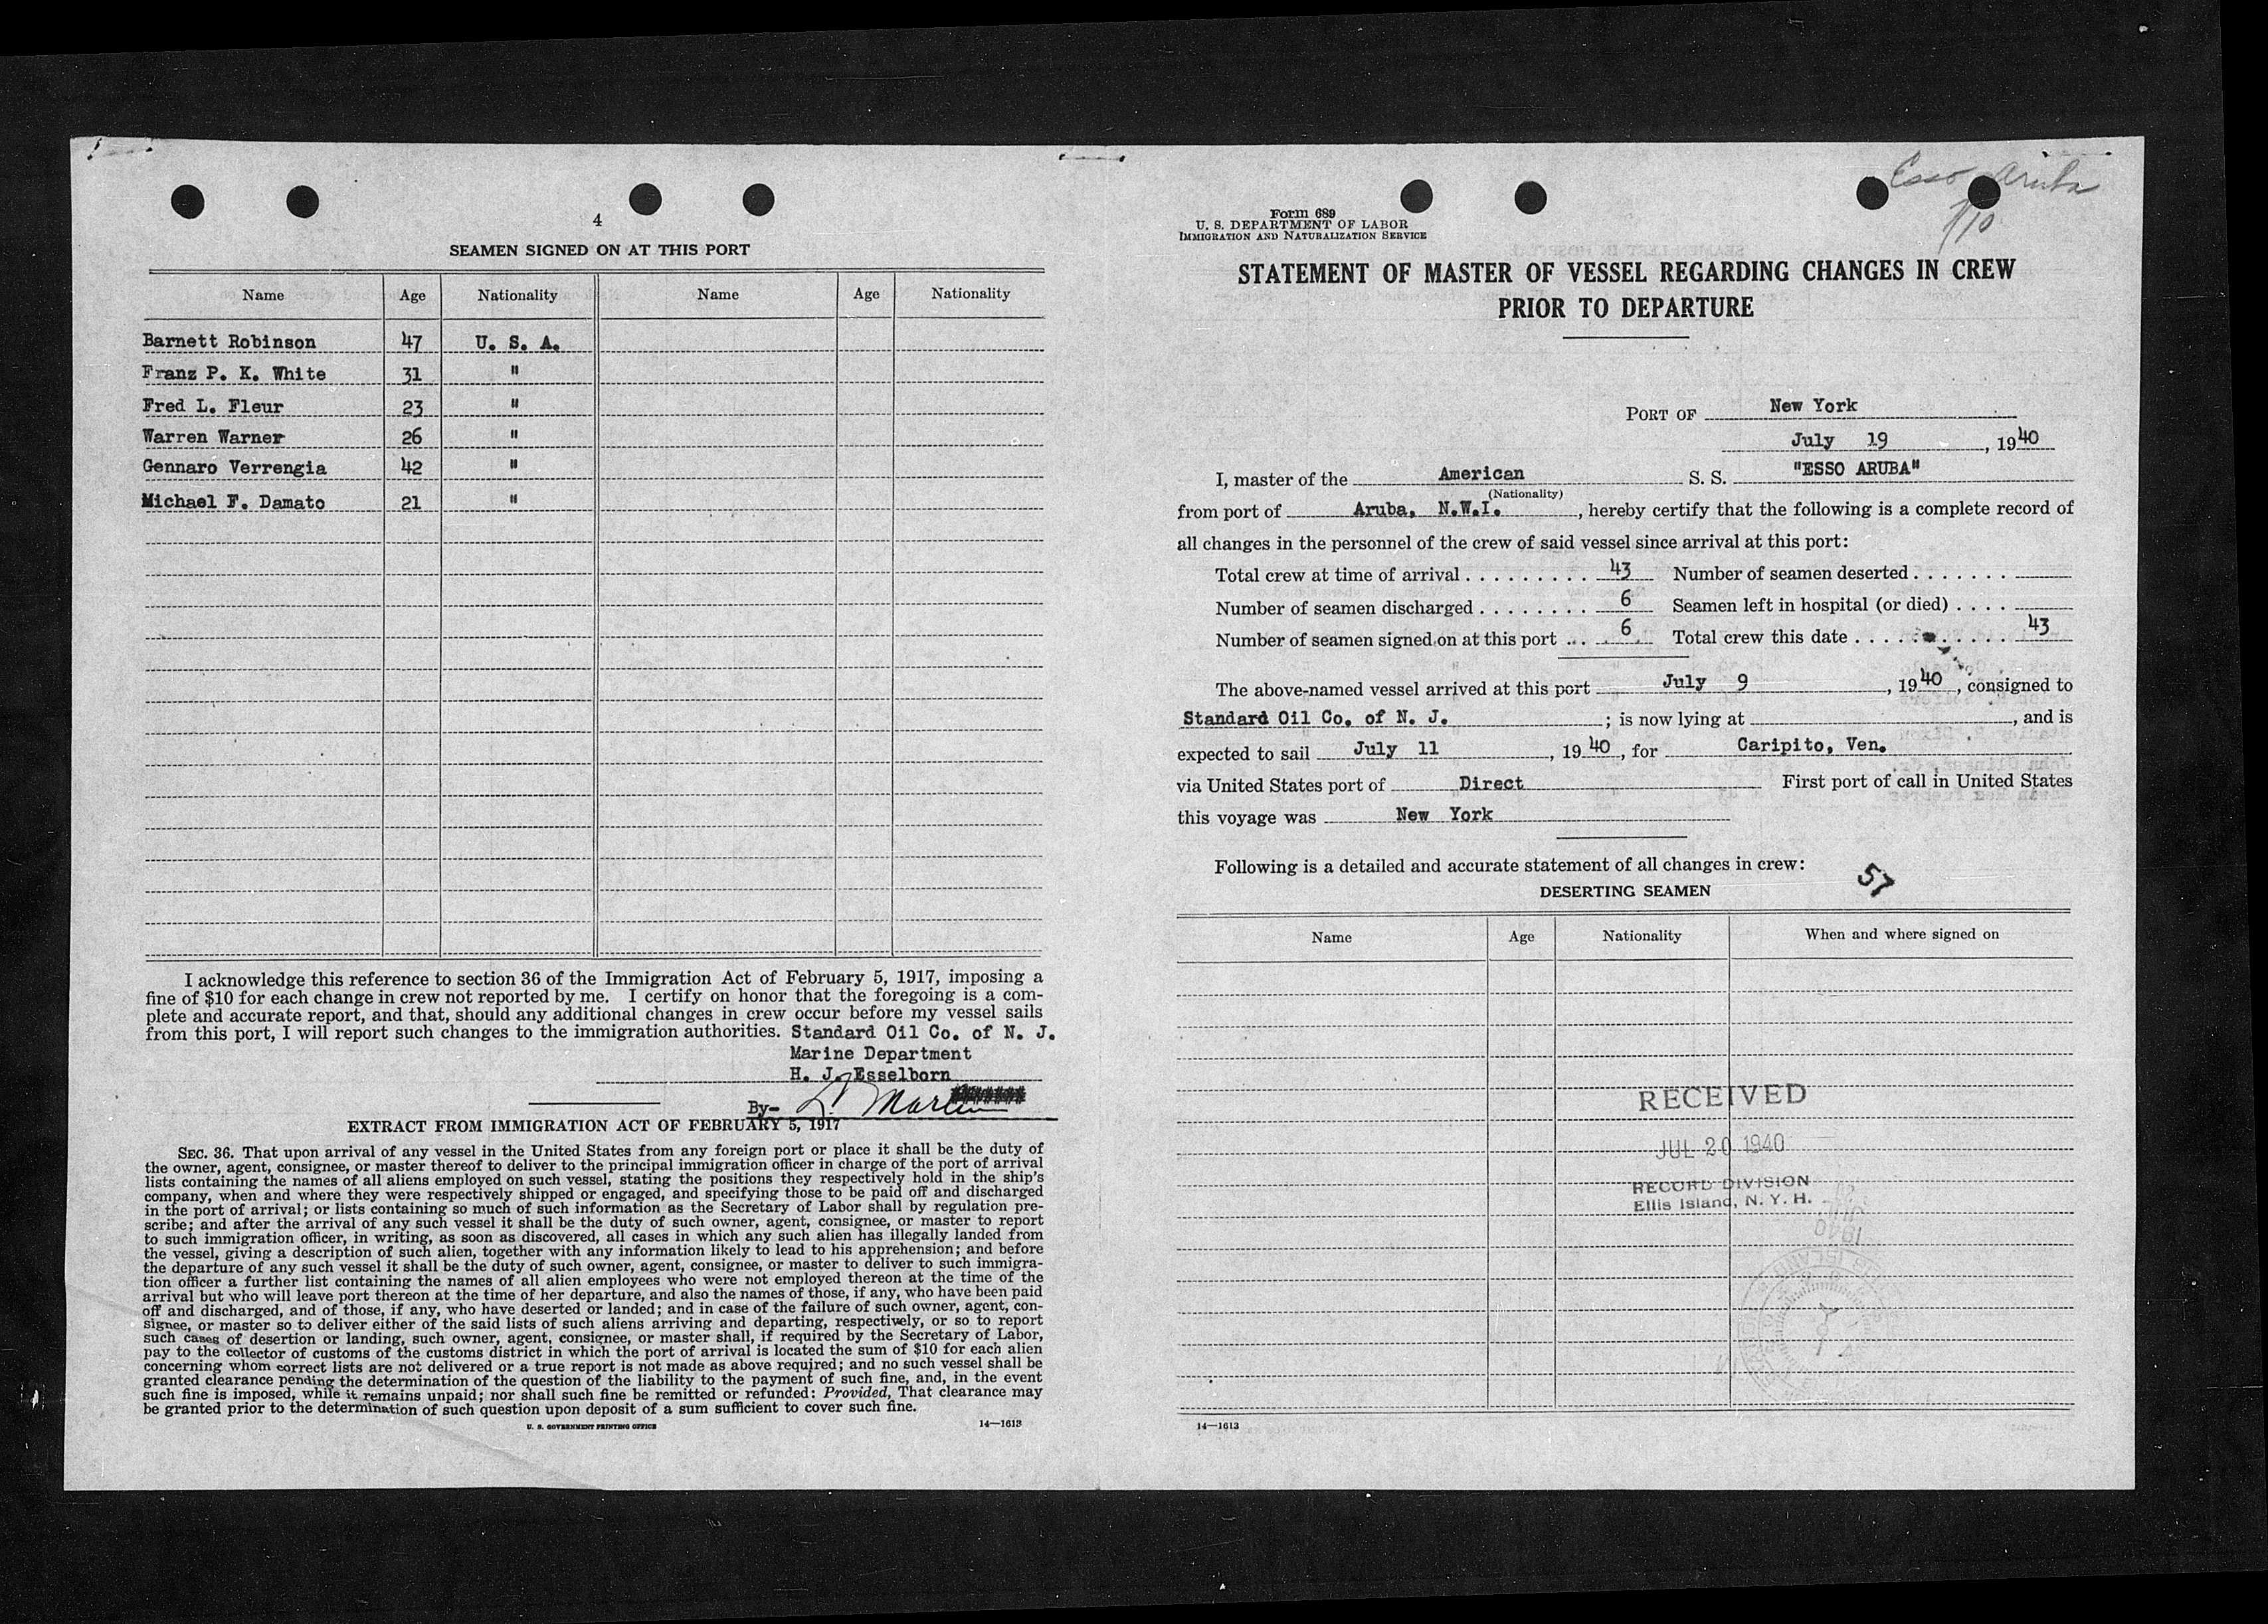 4
SEAMEN SIGNED ON AT THIS PORT
Name Age Nationality Name Age Nationality
Barnett Robinson 47 U. S. A.
Franz P. K. White 31 "
Fred L. Fleur 23 "
Warren Warner 26 "
Gennaro Verrengia 42 "
Michael F. Damato 21 "
I acknowledge this reference to section 36 of the Immigration Act of February 5, 1917, imposing a
fine of $10 for each change in crew not reported by me. I certify on honor that the foregoing is a com-
plete and accurate report, and that, should any additional changes in crew occur before my vessel sails
from this port, I will report such changes to the immigration authorities. Standard Oil Co. of N. J.
Marine Department
H. J. Esselborn
By-
EXTRACT FROM IMMIGRATION ACT OF FEBRUARY 5, 1917
SEC. 36. That upon arrival of any vessel in the United States from any foreign port or place it shall be the duty of
the owner, agent, consignee, or master thereof to deliver to the principal immigration officer in charge of the port of arrival
lists containing the names of all aliens employed on such vessel, stating the positions they respectively hold in the ship's
company, when and where they were respectively shipped or engaged, and specifying those to be paid off and discharged
in the port of arrival; or lists containing so much of such information as the Secretary of Labor shall by regulation pre-
scribe; and after the arrival of any such vessel it shall be the duty of such owner, agent, consignee, or master to report
to such immigration officer, in writing, as soon as discovered, all cases in which any such alien has illegally landed from
the vessel, giving a description of such alien, together with any information likely to lead to his apprehension; and before
the departure of any such vessel it shall be the duty of such owner, agent, consignee, or master to deliver to such immigra-
tion officer a further list containing the names of all alien employees who were not employed thereon at the time of the
arrival but who will leave port thereon at the time of her departure, and also the names of those, if any, who have been paid
off and discharged, and of those, if any, who have deserted or landed; and in case of the failure of such owner, agent, con-
signee, or master so to deliver either of the said lists of such aliens arriving and departing, respectively, or so to report
such cases of desertion or landing, such owner, agent, consignee, or master shall, if required by the Secretary of Labor,
pay to the collector of customs of the customs district in which the port of arrival is located the sum of $10 for each alien
concerning whom correct lists are not delivered or a true report is not made as above required; and no such vessel shall be
granted clearance pending the determination of the question of the liability to the payment of such fine, and, in the event
such fine is imposed, while it remains unpaid; nor shall such fine be remitted or refunded: Provided, That clearance may
be granted prior to the determination of such question upon deposit of a sum sufficient to cover such fine.
U. S. GOVERNMENT PRINTING OFFICE 14—1613
Esso Aruba
7/10
Form 689
U. S. DEPARTMENT OF LABOR
IMMIGRATION AND NATURALIZATION SERVICE
STATEMENT OF MASTER OF VESSEL REGARDING CHANGES IN CREW
PRIOR TO DEPARTURE
PORT OF New York
July 19, 1940
I, master of the American S. S. "ESSO ARUBA"
(Nationality)
from port of Aruba, N.W.I., hereby certify that the following is a complete record of
all changes in the personnel of the crew of said vessel since arrival at this port:
Total crew at time of arrival . . . . . . . . . . 43 Number of seamen deserted . . . . . . .
Number of seamen discharged . . . . . . . . 6 Seamen left in hospital (or died) . . . .
Number of seamen signed on at this port . . . . 6 Total crew this date . . . . . . . . . . 43
The above-named vessel arrived at this port July 9, 1940, consigned to
Standard Oil Co. of N. J.; is now lying at , and is
expected to sail July 11, 1940, for Caripito, Ven.
via United States port of Direct First port of call in United States
this voyage was New York
Following is a detailed and accurate statement of all changes in crew:
57
DESERTING SEAMEN
Name Age Nationality When and where signed on
RECEIVED
JUL 20 1940
RECORD DIVISION
Ellis Island, N. Y. H.
14—1613